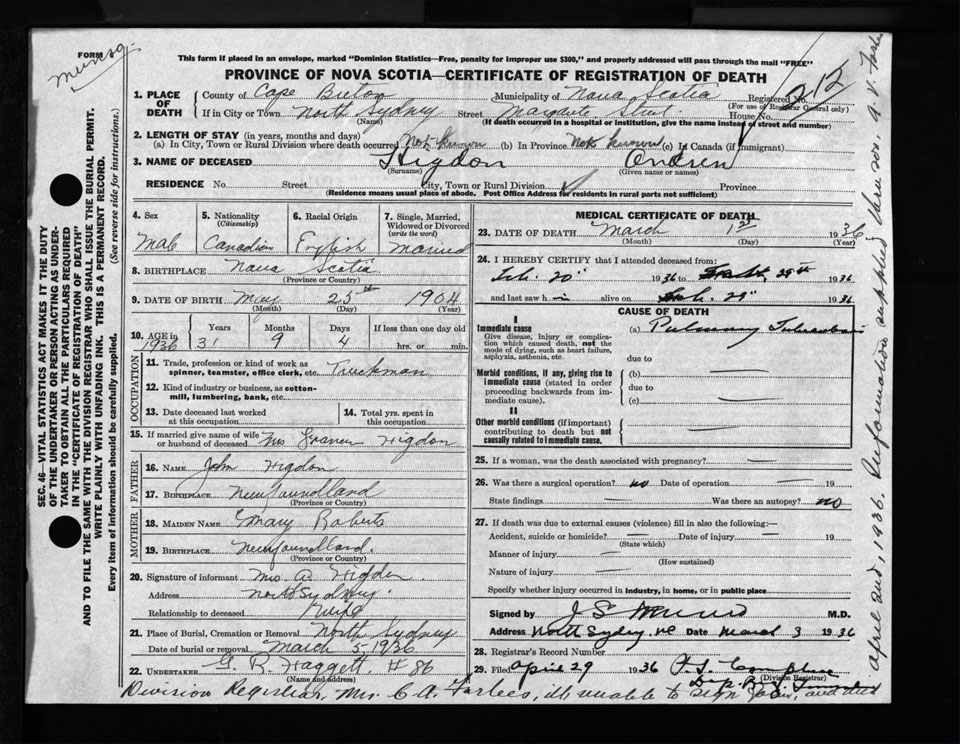 FORM
This form if placed in an envelope, marked "Dominion Statistics—Free, penalty for improper use $300," and properly addressed will pass through the mail "FREE"
PROVINCE OF NOVA SCOTIA—CERTIFICATE OF REGISTRATION OF DEATH
212
1. PLACE OF DEATH County of Cape Breton Municipality of Nova Scotia Registered No.
(For use of Registrar General only)
If in City or Town North Sydney Street House No.
(Name) (If death occurred in a hospital or institution, give the name instead of street and number)
2. LENGTH OF STAY (in years, months and days)
(a) In City, Town or Rural Division where death occurred Not known (b) In Province Not known (c) In Canada (if immigrant)
3. NAME OF DECEASED Higdon Andrew
(Surname) (Given name or names)
RESIDENCE No. Street City, Town or Rural Division Province
(Residence means usual place of abode. Post Office Address for residents in rural parts not sufficient)
4. Sex
Male
5. Nationality
(Citizenship)
Canadian
6. Racial Origin
English
7. Single, Married, Widowed or Divorced
(write the word)
Married
8. BIRTHPLACE Nova Scotia
(Province or Country)
9. DATE OF BIRTH May 25th 1904
(Month) (Day) (Year)
10. AGE in
1936
Years Months Days If less than one day old
31 9 4 hrs. or min.
OCCUPATION
11. Trade, profession or kind of work as spinner, teamster, office clerk, etc. Truckman
12. Kind of industry or business, as cotton-mill, lumbering, bank, etc.
13. Date deceased last worked at this occupation
14. Total yrs. spent in this occupation
15. If married give name of wife or husband of deceased Mrs Higdon
FATHER
16. NAME John Higdon
17. BIRTHPLACE Newfoundland
(Province or Country)
MOTHER
18. MAIDEN NAME Mary Roberts
19. BIRTHPLACE Newfoundland.
(Province or Country)
20. Signature of informant Mrs. A. Higdon
Address North Sydney.
Relationship to deceased Wife
21. Place of Burial, Cremation or Removal North Sydney
Date of burial or removal March 5, 1936
22. UNDERTAKER G. R. Haggett, # 86
(Name and address)
MEDICAL CERTIFICATE OF DEATH
23. DATE OF DEATH March 1st 1936
(Month) (Day) (Year)
24. I HEREBY CERTIFY that I attended deceased from:
Feb. 20 1936 to 29th 1936
and last saw h alive on 1936
CAUSE OF DEATH
I
Immediate cause (a) Pulmonary Tuberculosis
Give disease, injury or complication which caused death, not the mode of dying, such as heart failure, asphyxia, asthenia, etc.
due to
Morbid conditions, if any, giving rise to immediate cause (stated in order proceeding backwards from immediate cause).
(b)
due to
(c)
II
Other morbid conditions (if important) contributing to death but not causally related to immediate cause.
25. If a woman, was the death associated with pregnancy?
26. Was there a surgical operation? no Date of operation 19
State findings Was there an autopsy? no
27. If death was due to external causes (violence) fill in also the following:—
Accident, suicide or homicide? Date of injury 19
(State which)
Manner of injury
(How sustained)
Nature of injury
Specify whether injury occurred in industry, in home, or in public place
Signed by M.D.
Address North Sydney, NS Date March 3 1936
28. Registrar's Record Number
29. Filed April 29 1936
(Division Registrar)
Division Registrar, Mrs. C. A. Forbes, ill unable to sign
SEC. 46—VITAL STATISTICS ACT MAKES IT THE DUTY
OF THE UNDERTAKER OR PERSON ACTING AS UNDER-
TAKER TO OBTAIN ALL THE PARTICULARS REQUIRED
IN THE "CERTIFICATE OF REGISTRATION OF DEATH"
AND TO FILE THE SAME WITH THE DIVISION REGISTRAR WHO SHALL ISSUE THE BURIAL PERMIT.
WRITE PLAINLY WITH UNFADING INK. THIS IS A PERMANENT RECORD.
Every item of information should be carefully supplied.
(See reverse side for instructions.)
April 2nd, 1936. Information supplied